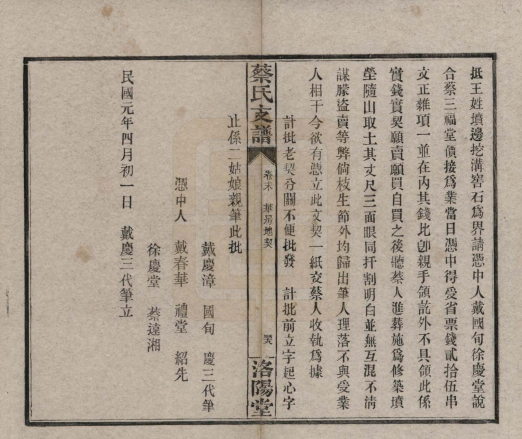 抵王姓墳邊挖溝窖石爲界請憑中人戴國旬徐慶堂說
合蔡三福堂債接爲業當日憑中得受省票錢貳拾伍串
文正雜項一並在內其錢比卽親手領訖外不具領此係
實錢實契願賣願買自買之後聽蔡人進葬施爲修築墳
塋隨山取土其丈尺三面眼同扦割明白並無互混不淸
謀朦盜賣等弊倘枝生節外均歸出筆人理落不與受業
人相干今欲有憑立此文契一紙交蔡人收執爲據
計批老契分關不便批發 計批前立字起心字
止係二姑娘親筆此批
蔡氏支譜
卷末 華居地契
洛陽堂
戴慶漳 國旬 慶三代筆
憑中人 戴春華 禮堂 紹先
徐慶堂 蔡達湘
民國元年四月初一日 戴慶三代筆立